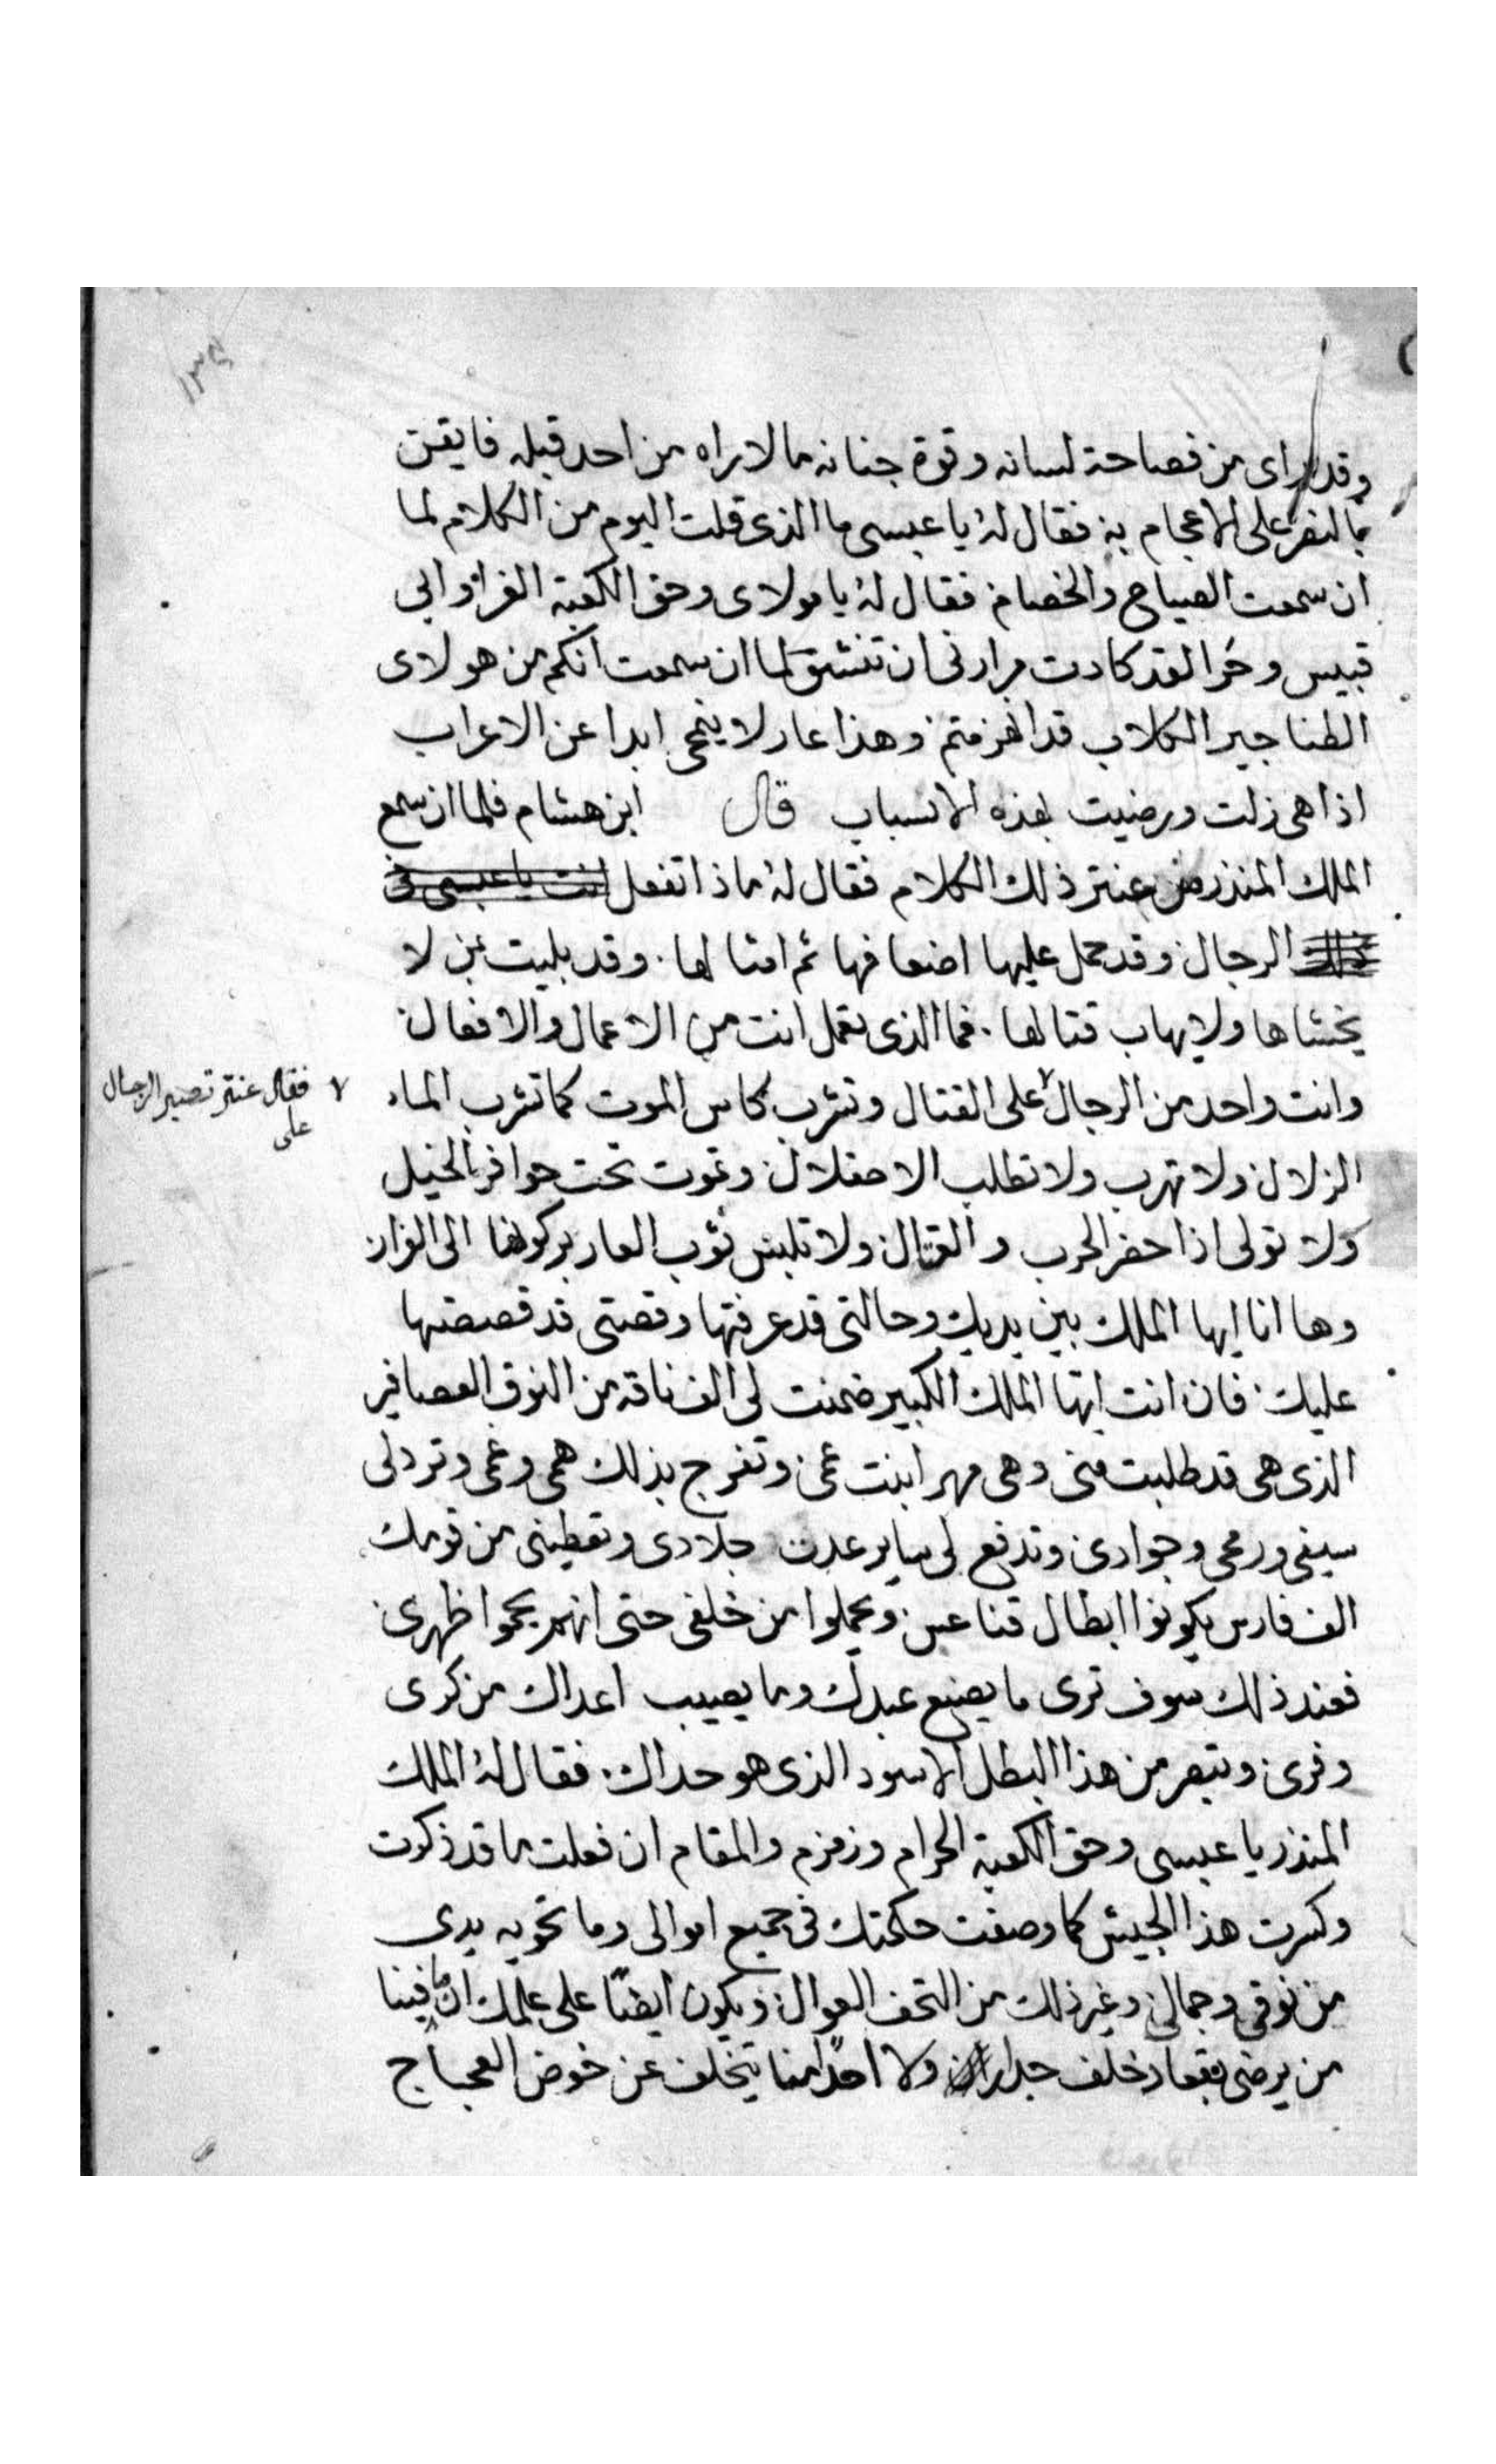 ١٣٤
وقد راى من فصاحة لسانه وقوة جنانه ما لا راه من احد قبله فايقن
بالنصر على الاعجام به فقال له يا عبسى ما الذى قلت اليوم من الكلام لما
ان سمعت الصياح والخصام فقال له يا مولاى وحق الكعبة الغرا وابى
قبيس وحرا لقد كادت مرارتى ان تنشق لما ان سمعت انكم من هولاى
الطناجير الكلاب قد انهزمتم وهذا عار لا ينمحى ابدا عن الاعراب
اذا هى زلت ورضيت بهذه الاسباب قال ابن هشام فلما ان سمع
الملك المنذر من عنتر ذلك الكلام فقال له ماذا تفعل انت يا عبسى فى
الرجال وقد حمل عليها اضعافها ثم امثالها وقد بليت بمن لا
يخشاها ولا يهاب قتالها فما الذى تعمل انت من الاعمال والافعال
وانت واحد من الرجال ٧ على القتال وتشرب كاس الموت كما تشرب الماء
٧ فقال عنتر تصبر الرجال
على
الزلال ولا تهرب ولا تطلب الاحتلال وتموت تحت حوافر الخيل
ولا تولى اذا حضر الحرب والقتال ولا تلبس ثوب العار بركونها الى الفرار
وها انا ايها الملك بين يديك وحالتى قد عرفتها وقصتى قد قصصتها
عليك فان انت ايها الملك الكبير ضمنت لى الف ناقه من النوق العصافير
الذى هى قد طلبت منى وهى مهر ابنت عمى وتفرج بذلك همى وغمى وترد لى
سيفى ورمحى وجوادى وتدفع لى ساير عدت جلادى وتعطينى من قومك
الف فارس يكونوا ابطال قناعس ويحملوا من خلفى حتى انهم يحموا ظهرى
فعند ذلك سوف ترى ما يصنع عبدك وما يصيب اعداك من كرى
وفرى وتبصر من هذا البطل الاسود الذى هو حداك فقال له الملك
المنذر يا عبسى وحق الكعبة الحرام وزمزم والمقام ان فعلت ما قد ذكرت
وكسرت هذا الجيش كما وصفت حكمتك فى جميع اموالى وما تحويه يدى
من نوقى وجمالى وغير ذلك من التحف الغوال ويكون ايضًا على علمك ان ما فينا
من يرضى بقعاد خلف جدار ولا احدًا منا يتخلف عن خوض العجاج